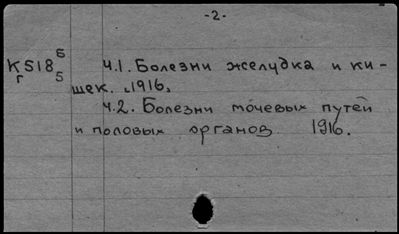 -2-
К518 Б/5 ч.1. Болезни желудка и ки-
г шек. 1916.
ч.2. Болезни мочевых путей
и половых органов 1916.